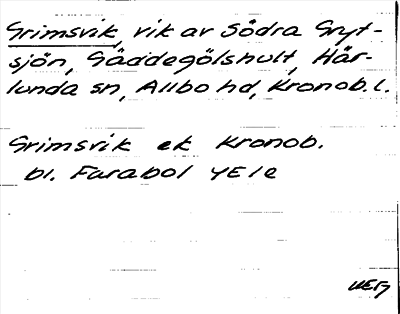 Grimsvik, vik av Södra Gryt-
sjön, Gäddegölshult, Här-
lunda sn, Allbo hd, Kronob. l.
Grimsvik ek Kronob.
bl. Farabol YE1e